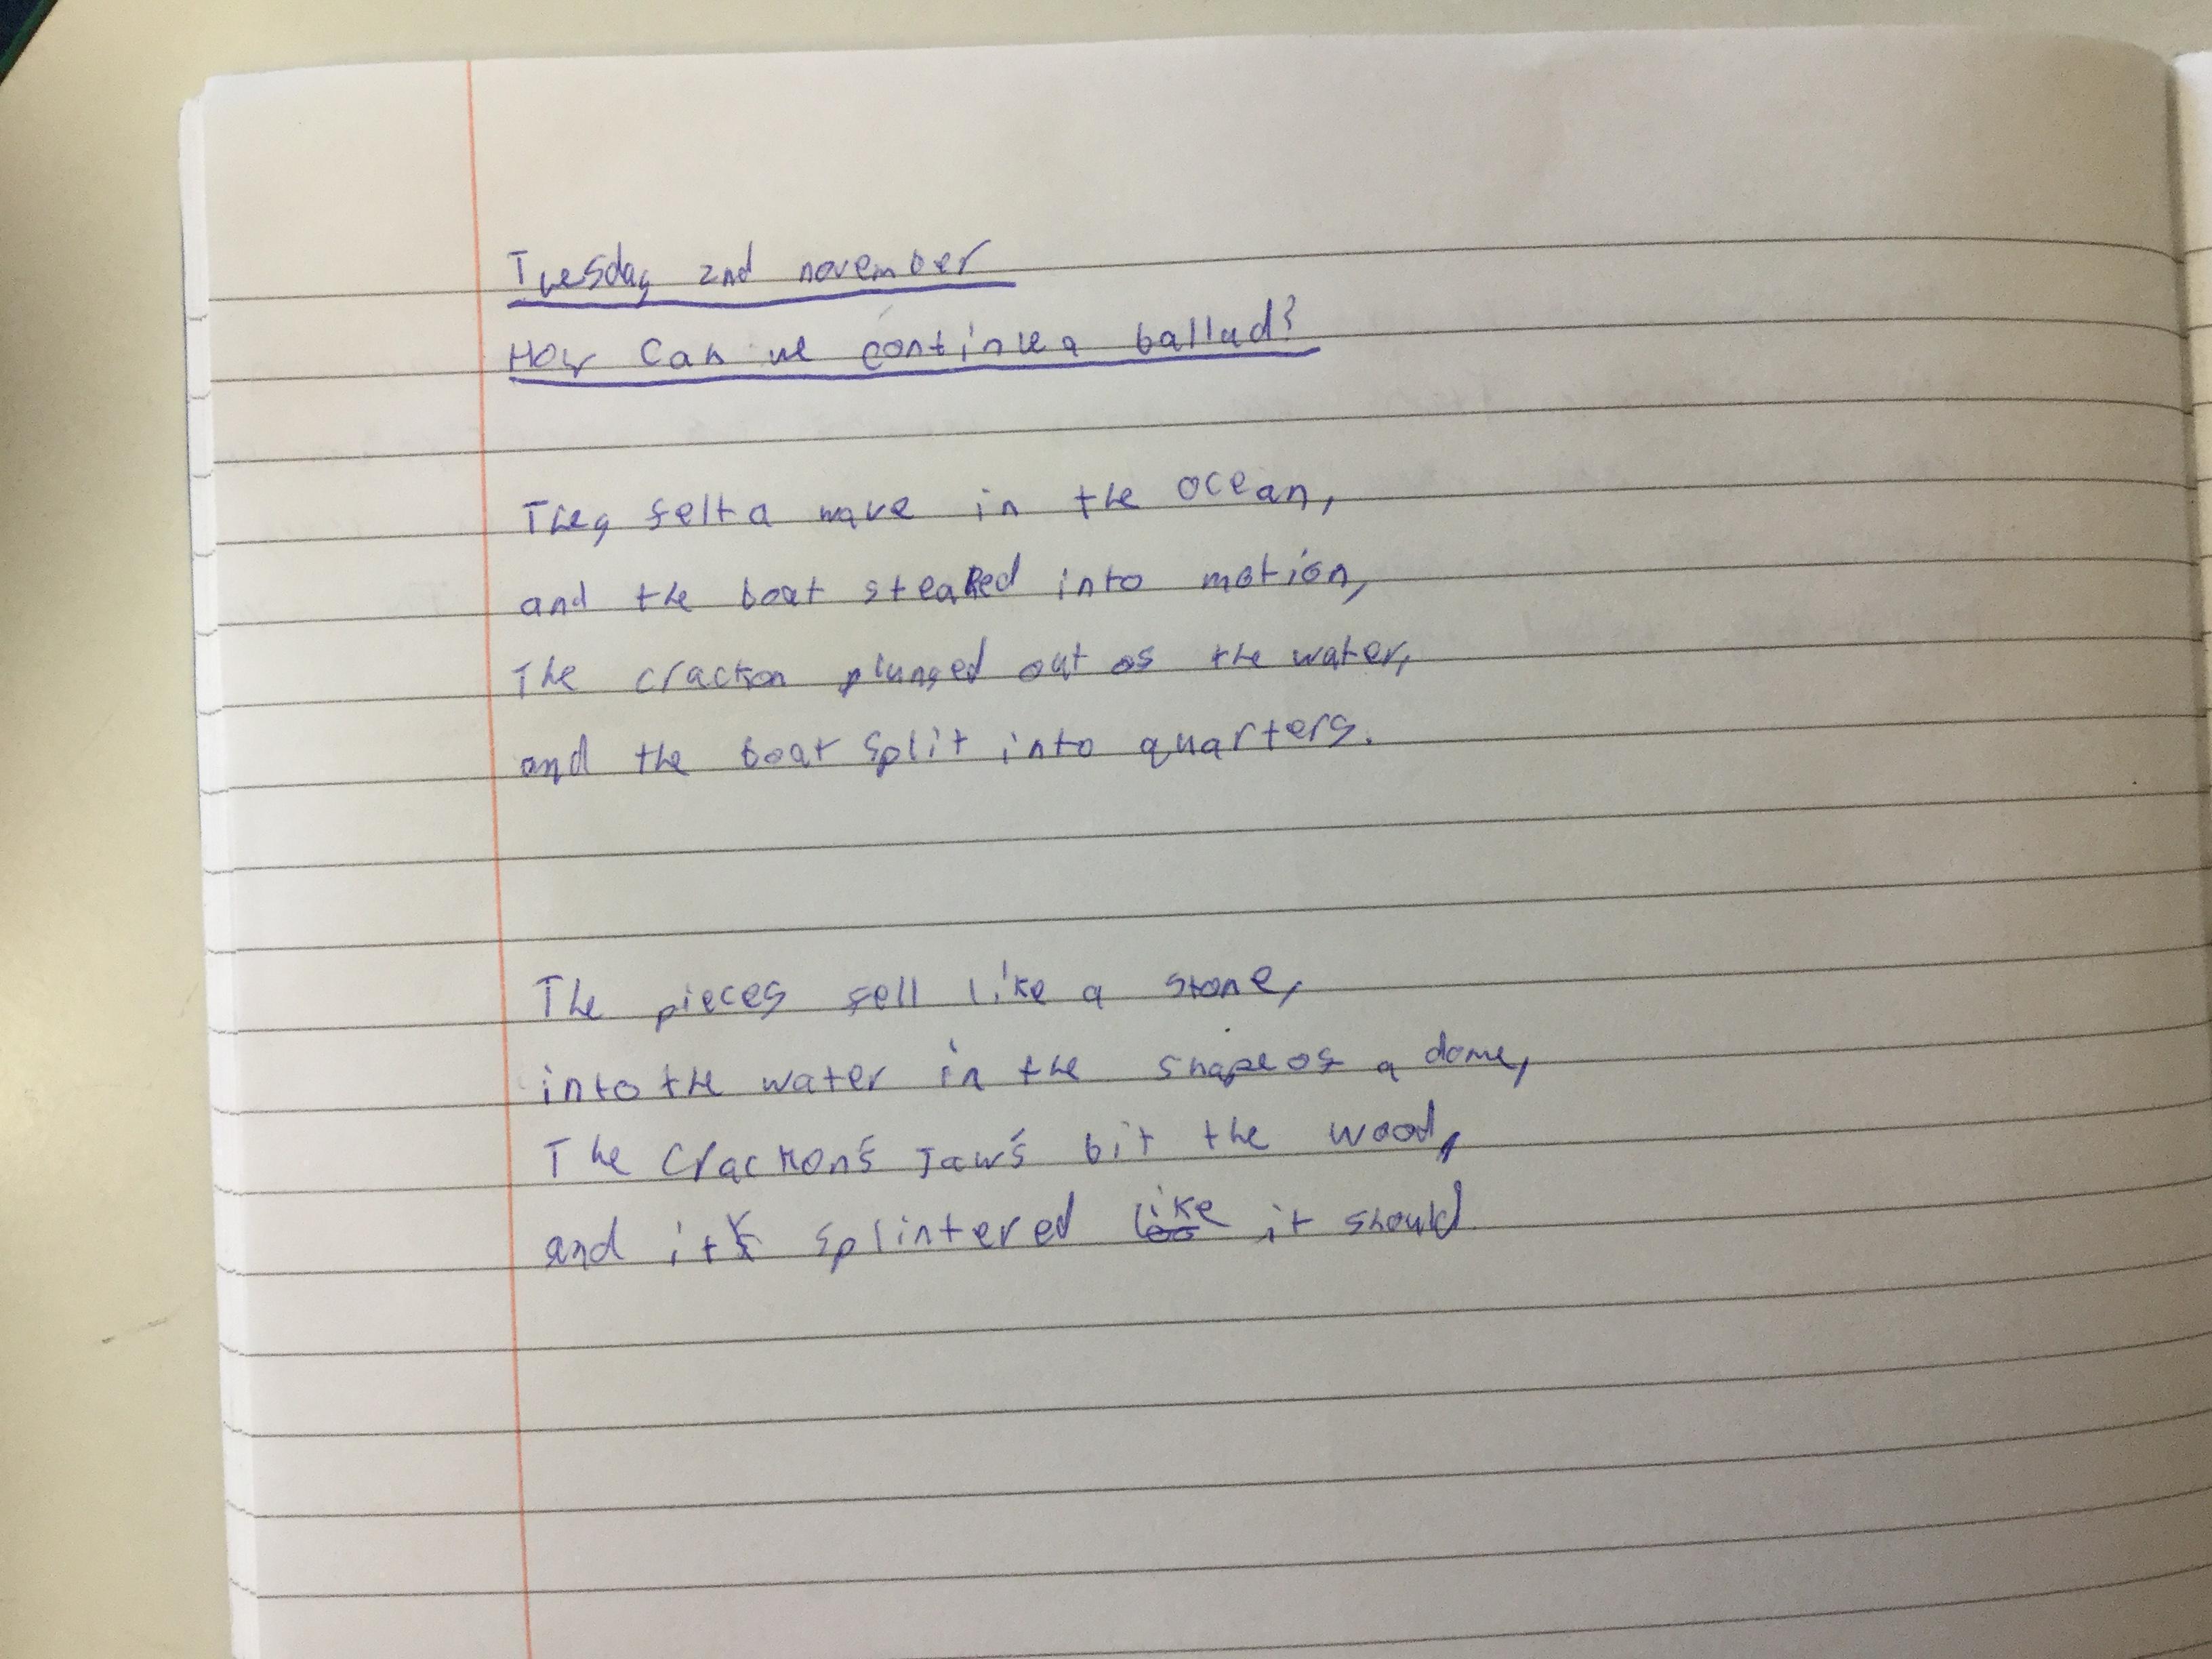 Tuesday 2nd november
How Can we continue a ballad?
They felt a wave in the ocean,
and the boat steaked into motion,
The crackon plunged out of the water,
and the boat split into quarters.
The pieces fell like a stone,
into the water in the shape of a dome,
The Crackon's Jaw's bit the wood,
and it splintered like it should